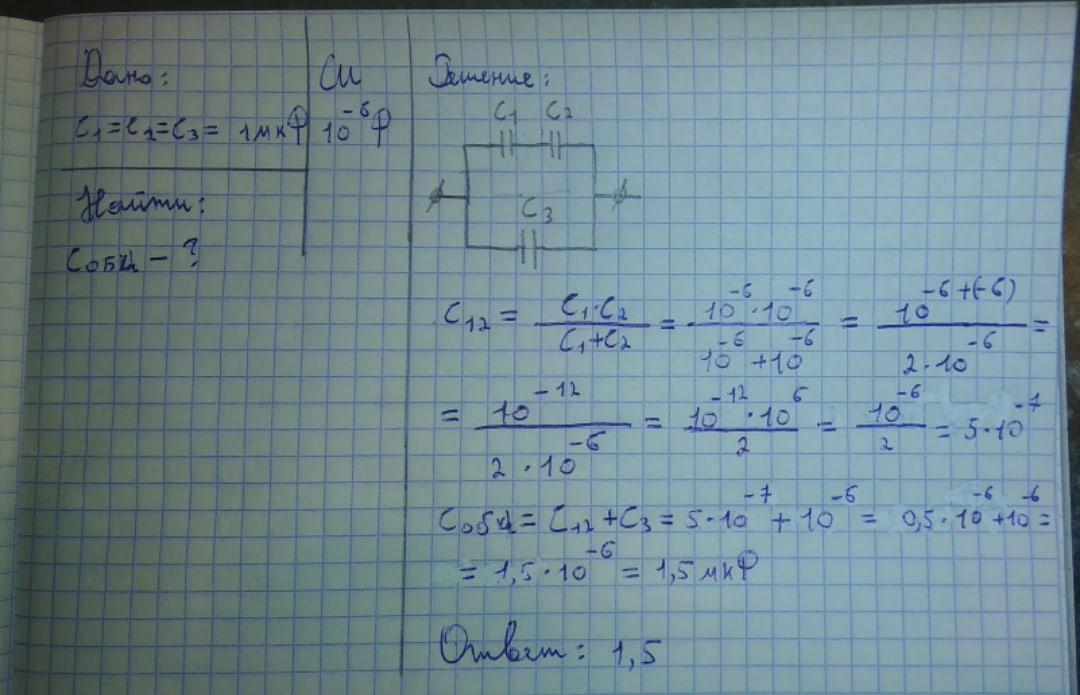 Дано:
C₁=C₂=C₃= 1мкФ
Найти:
Cобщ – ?
СИ
10⁻⁶Ф
Решение:
C₁ C₂
C₃
C₁₂ = (C₁·C₂)/(C₁+C₂) = (10⁻⁶·10⁻⁶)/(10⁻⁶+10⁻⁶) = 10⁻⁶⁺⁽⁻⁶⁾/(2·10⁻⁶) =
= 10⁻¹²/(2·10⁻⁶) = (10⁻¹²·10⁶)/2 = 10⁻⁶/2 = 5·10⁻⁷
Cобщ = C₁₂+C₃ = 5·10⁻⁷+10⁻⁶ = 0,5·10⁻⁶+10⁻⁶ =
= 1,5·10⁻⁶ = 1,5мкФ
Ответ: 1,5